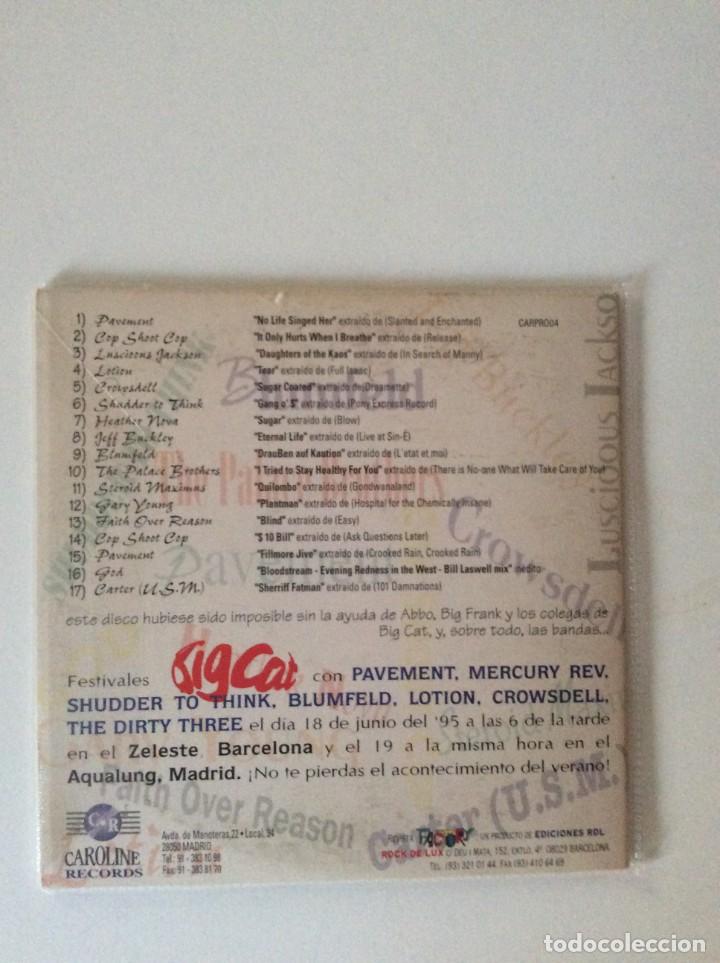 1) Pavement "No Life Singed Her" extraído de (Slanted and Enchanted) CARPRO04
2) Cop Shoot Cop "It Only Hurts When I Breathe" extraído de (Release)
3) Luscious Jackson "Daughters of the Kaos" extraído de (In Search of Manny)
4) Lotion "Tear" extraído de (Full Isaac)
5) Crowsdell "Sugar Coated" extraído de (Dreamette)
6) Shudder to Think "Gang o' $" extraído de (Pony Express Record)
7) Heather Nova "Sugar" extraído de (Blow)
8) Jeff Buckley "Eternal Life" extraído de (Live at Sin-É)
9) Blumfeld "DrauBen auf Kaution" extraído de (L'etat et moi)
10) The Palace Brothers "I Tried to Stay Healthy For You" extraído de (There is No-one What Will Take Care of You)
11) Steroid Maximus "Quilombo" extraído de (Gondwanaland)
12) Gary Young "Plantman" extraído de (Hospital for the Chemically Insane)
13) Faith Over Reason "Blind" extraído de (Easy)
14) Cop Shoot Cop "$ 10 Bill" extraído de (Ask Questions Later)
15) Pavement "Fillmore Jive" extraído de (Crooked Rain, Crooked Rain)
16) God "Bloodstream - Evening Redness in the West - Bill Laswell mix" inédito
17) Carter (U.S.M.) "Sherriff Fatman" extraído de (101 Damnations)
Luscious Jackso
Blumfeld
Crowsdell
Pave
este disco hubiese sido imposible sin la ayuda de Abbo, Big Frank y los colegas de
Big Cat, y, sobre todo, las bandas...
Festivales Big Cat con PAVEMENT, MERCURY REV,
SHUDDER TO THINK, BLUMFELD, LOTION, CROWSDELL,
THE DIRTY THREE el día 18 de junio del '95 a las 6 de la tarde
en el Zeleste, Barcelona y el 19 a la misma hora en el
Aqualung, Madrid. ¡No te pierdas el acontecimiento del verano!
Faith Over Reason
Carter (U.S.M.)
C&R
CAROLINE
RECORDS
Avda. de Manoteras, 22 • Local, 94
28050 MADRID
Tel.: 91 - 383 10 98
Fax: 91 - 383 81 70
REVISTA FACTORY UN PRODUCTO DE EDICIONES RDL
ROCK DE LUX C/ DEU I MATA, 152, EXTLO, 4º 08029 BARCELONA
TEL. (93) 321 01 44. FAX (93) 410 64 69
todocoleccion
todocoleccion.net